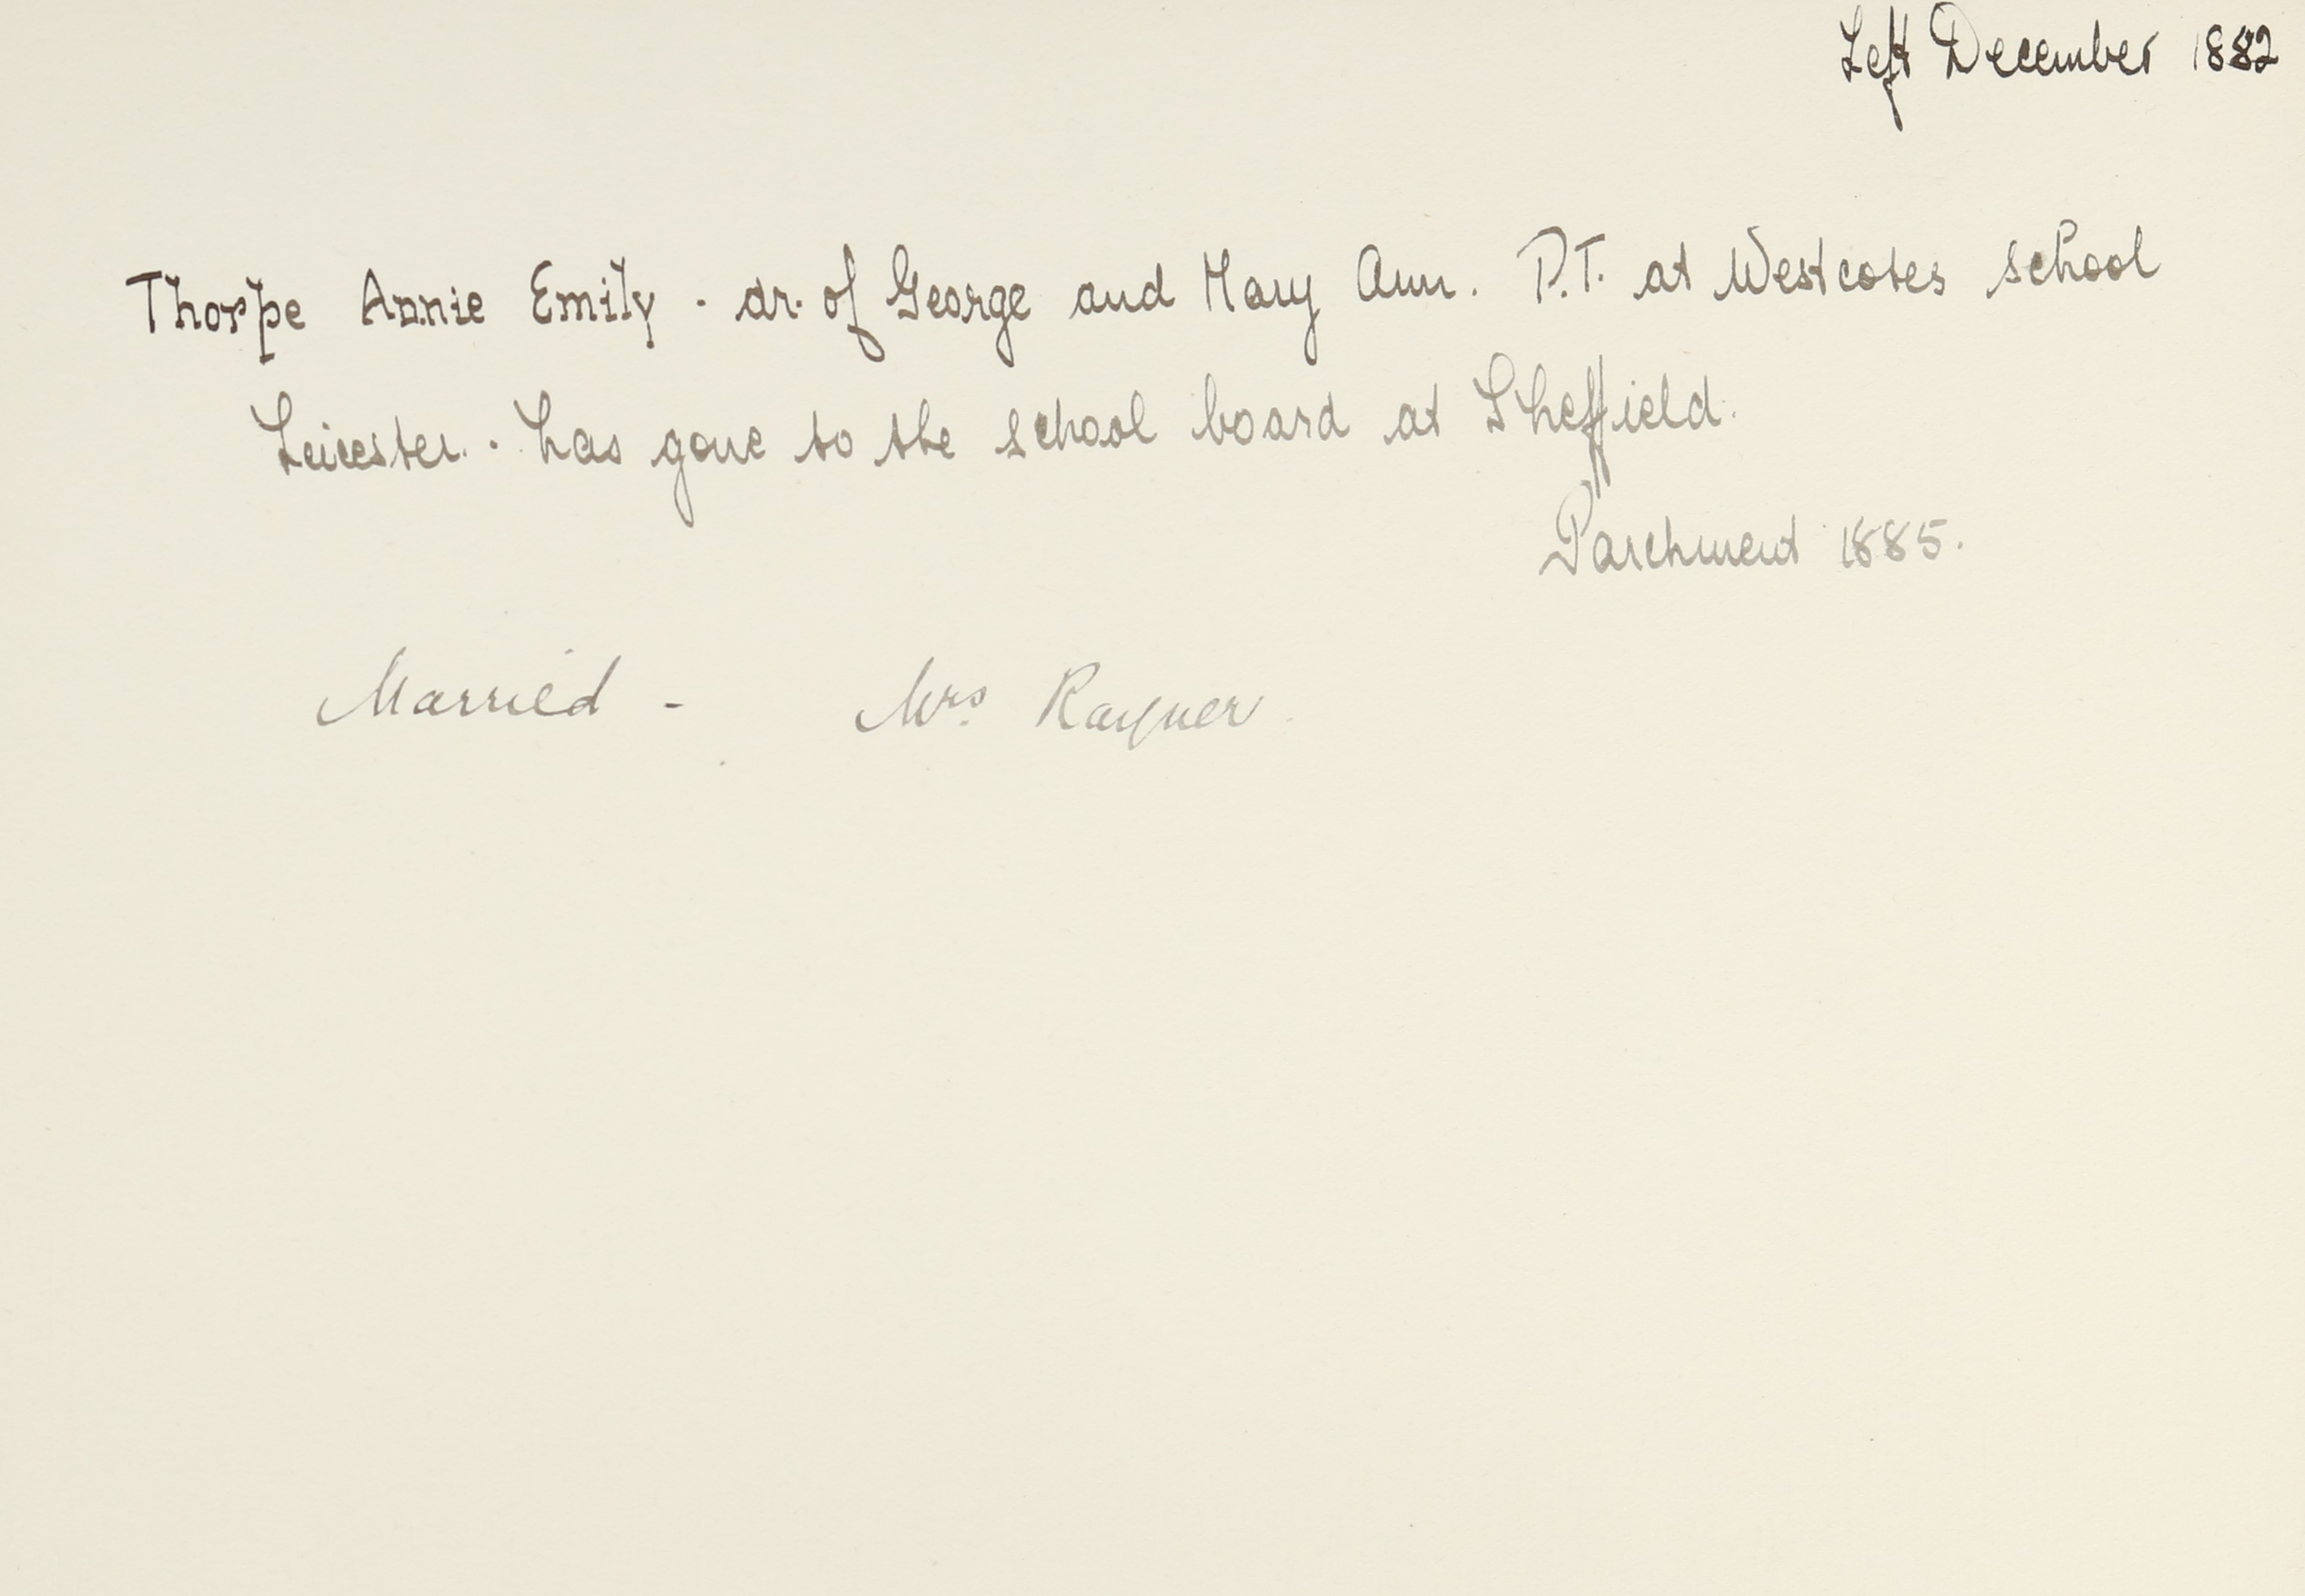 Left December 1882
Thorpe Annie Emily . dr. of George and Mary Ann. P.T. at Westcotes school
Leicester. . has gone to the school board at Sheffield.
Parchment 1885.
Married - Mrs. Rayner